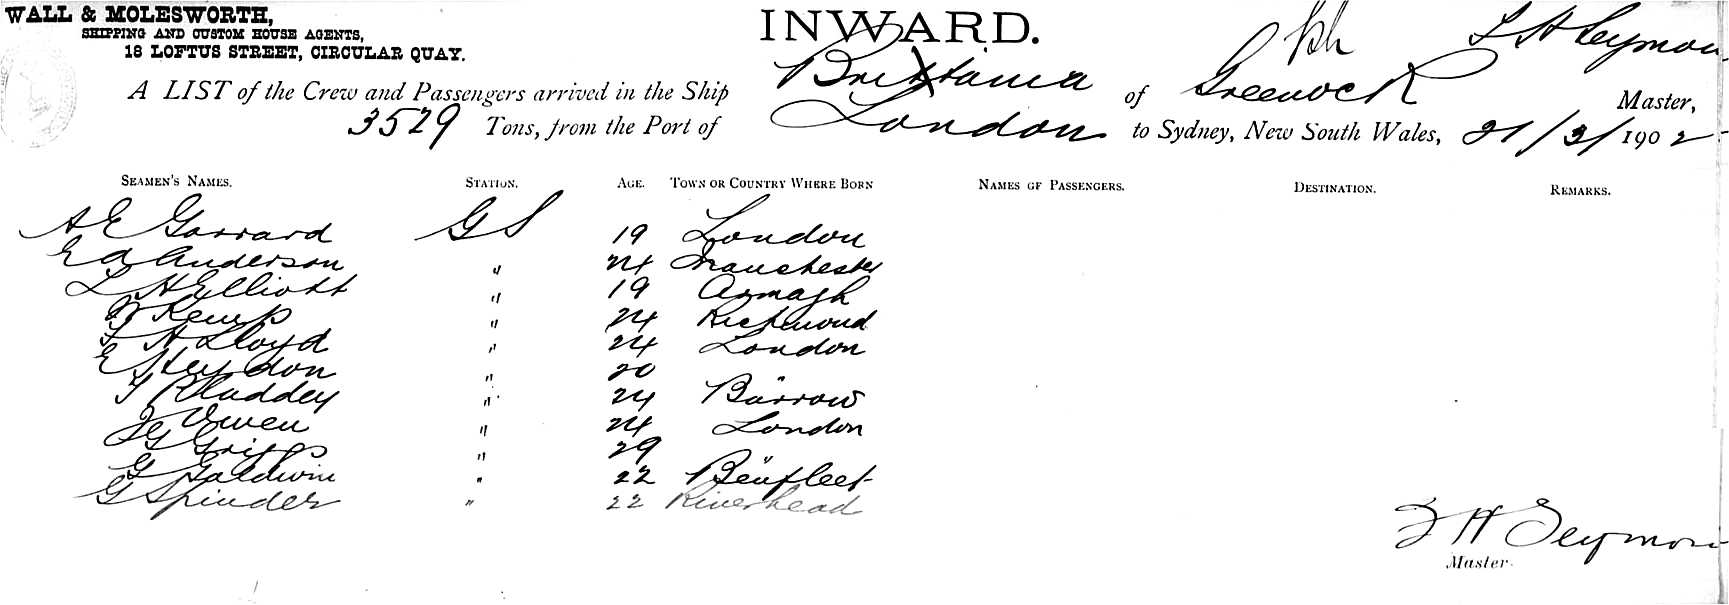 WALL & MOLESWORTH,
SHIPPING AND CUSTOM HOUSE AGENTS,
18 LOFTUS STREET, CIRCULAR QUAY.
INWARD.
A LIST of the Crew and Passengers arrived in the Ship Brittania of Greenock Seymour Master,
3529 Tons, from the Port of London to Sydney, New South Wales, 21/3/1902
SEAMEN'S NAMES. STATION. AGE. TOWN OR COUNTRY WHERE BORN NAMES OF PASSENGERS. DESTINATION. REMARKS.
A E Garrard G S 19 London
E A Anderson " 24 Manchester
L H Elliott " 19 Armagh
Kemp " 24 Richmond
H Lloyd " 24 London
E Heydon " 20 "
" 24 Barrow
Owen " 24 London
G Griggs " 29 "
G Baldwin " 22 Benfleet
G Spinder " 22 Riverhead
H Seymour
Master.